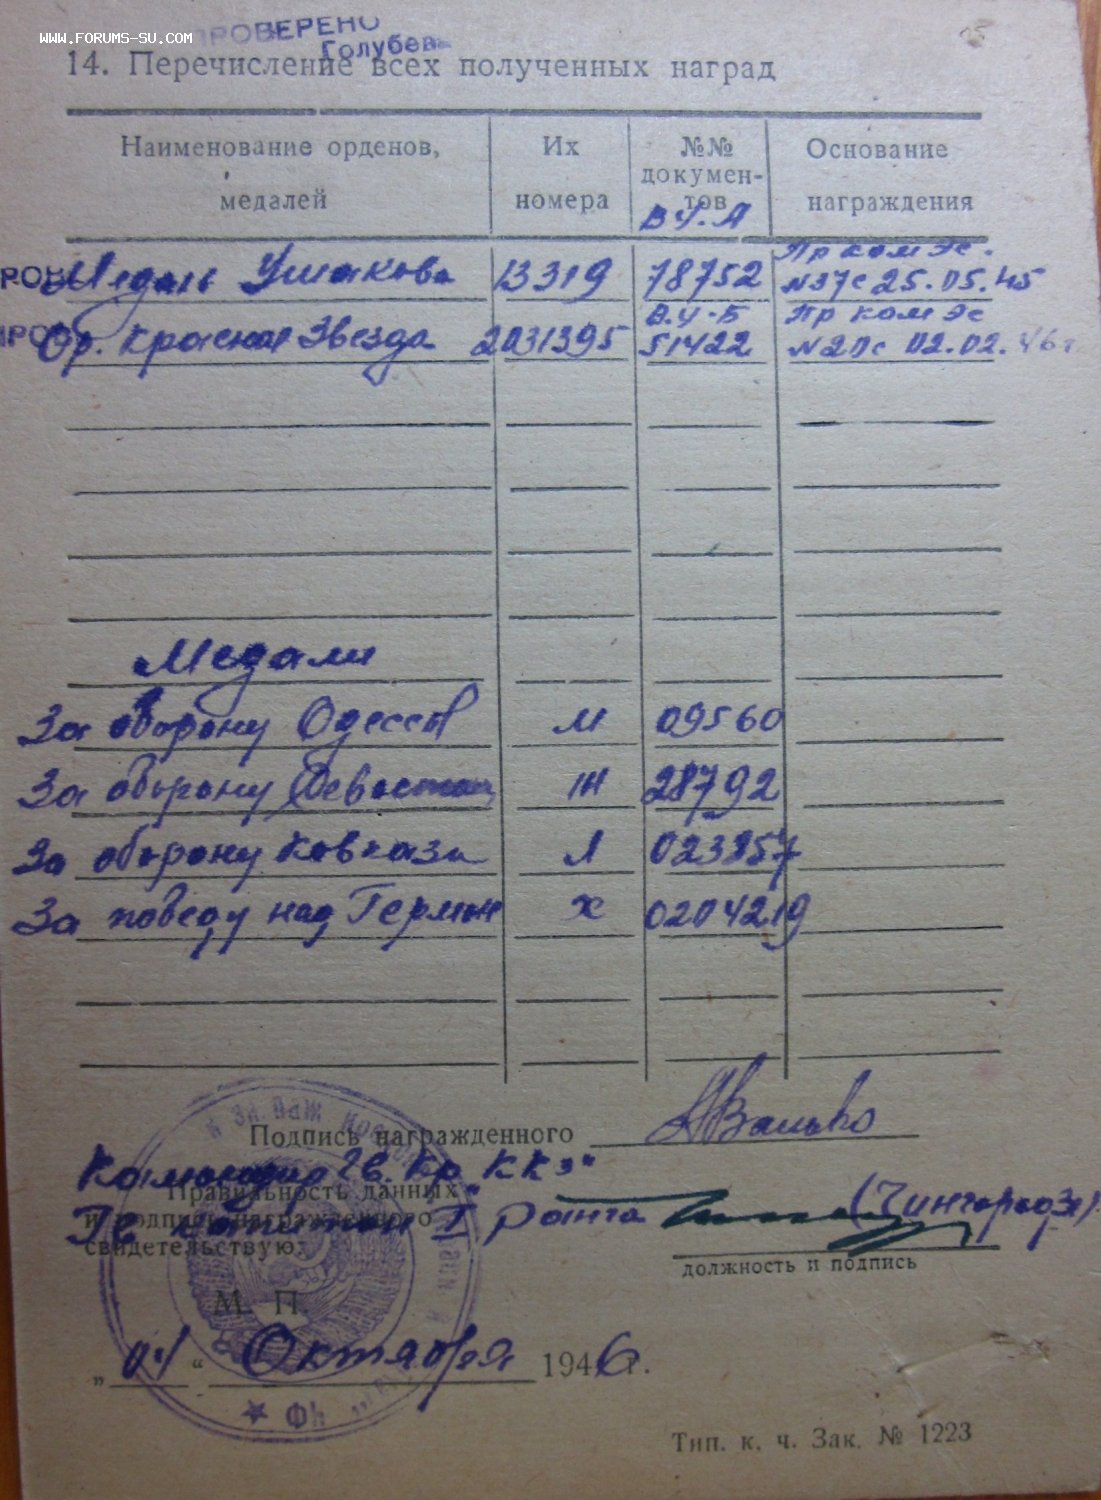 WWW.FORUMS-SU.COM
ПРОВЕРЕНО
Голубев
14. Перечисление всех полученных наград
Наименование орденов, медалей
Их номера
№№ докумен-тов
Основание награждения
В Ч. А
Пр ком Эс.
Медаль Ушакова 13319 78752 №37с 25.05.45
В.Ч-Б Пр ком Эс
Ор. Красная Звезда 2031395 51422 №20с 02.02.46г
Медали
За оборону Одессы М 09560
За оборону Севастоп Н 28792
За оборону Кавказа Л 023857
За победу над Герман Х 0204219
Подпись награжденного
Командир Гв. Кр. ККз"
Правильность данных
Гв капитан I ранга
и подпись награжденного
свидетельствую:
должность и подпись
М. П.
„04“ Октября 1946 г.
Тип. к. ч. Зак. № 1223